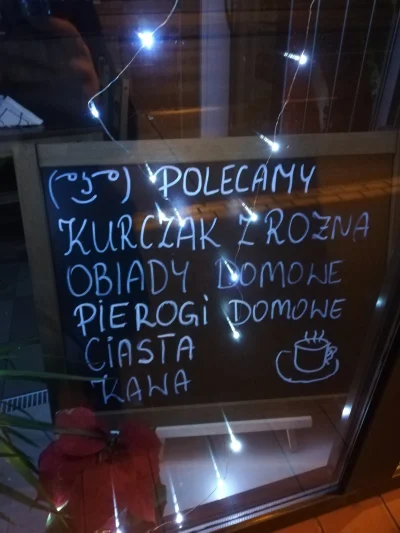 ( ͡° ͜ʖ ͡°) POLECAMY
KURCZAK Z ROŻNA
OBIADY DOMOWE
PIEROGI DOMOWE
CIASTA
KAWA